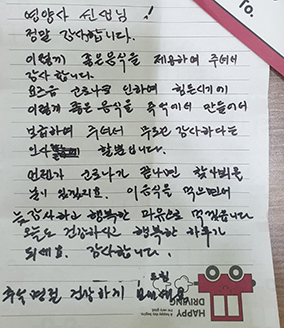 영양사 선생님!
정말 감사합니다.
이렇게 좋은음식을 제공하여 주셔서
감사 합니다.
요즈음 코로나로 인하여 힘든시기에
이렇게 좋은 음식을 추억에서 만들어서
보급하여 주셔서 무척 감사하다는
인사 할뿐입니다.
언젠가 코로나가 끝나면 찾아뵈올
날이 있겠지요. 이음식을 먹으면서
늘 감사하고 행복한 마음으로 먹겠습니다
오늘도 건강하시고 행복한 하루가
되세요. 감사합니다.
건강하기
HAPPY
DRIVING
To.